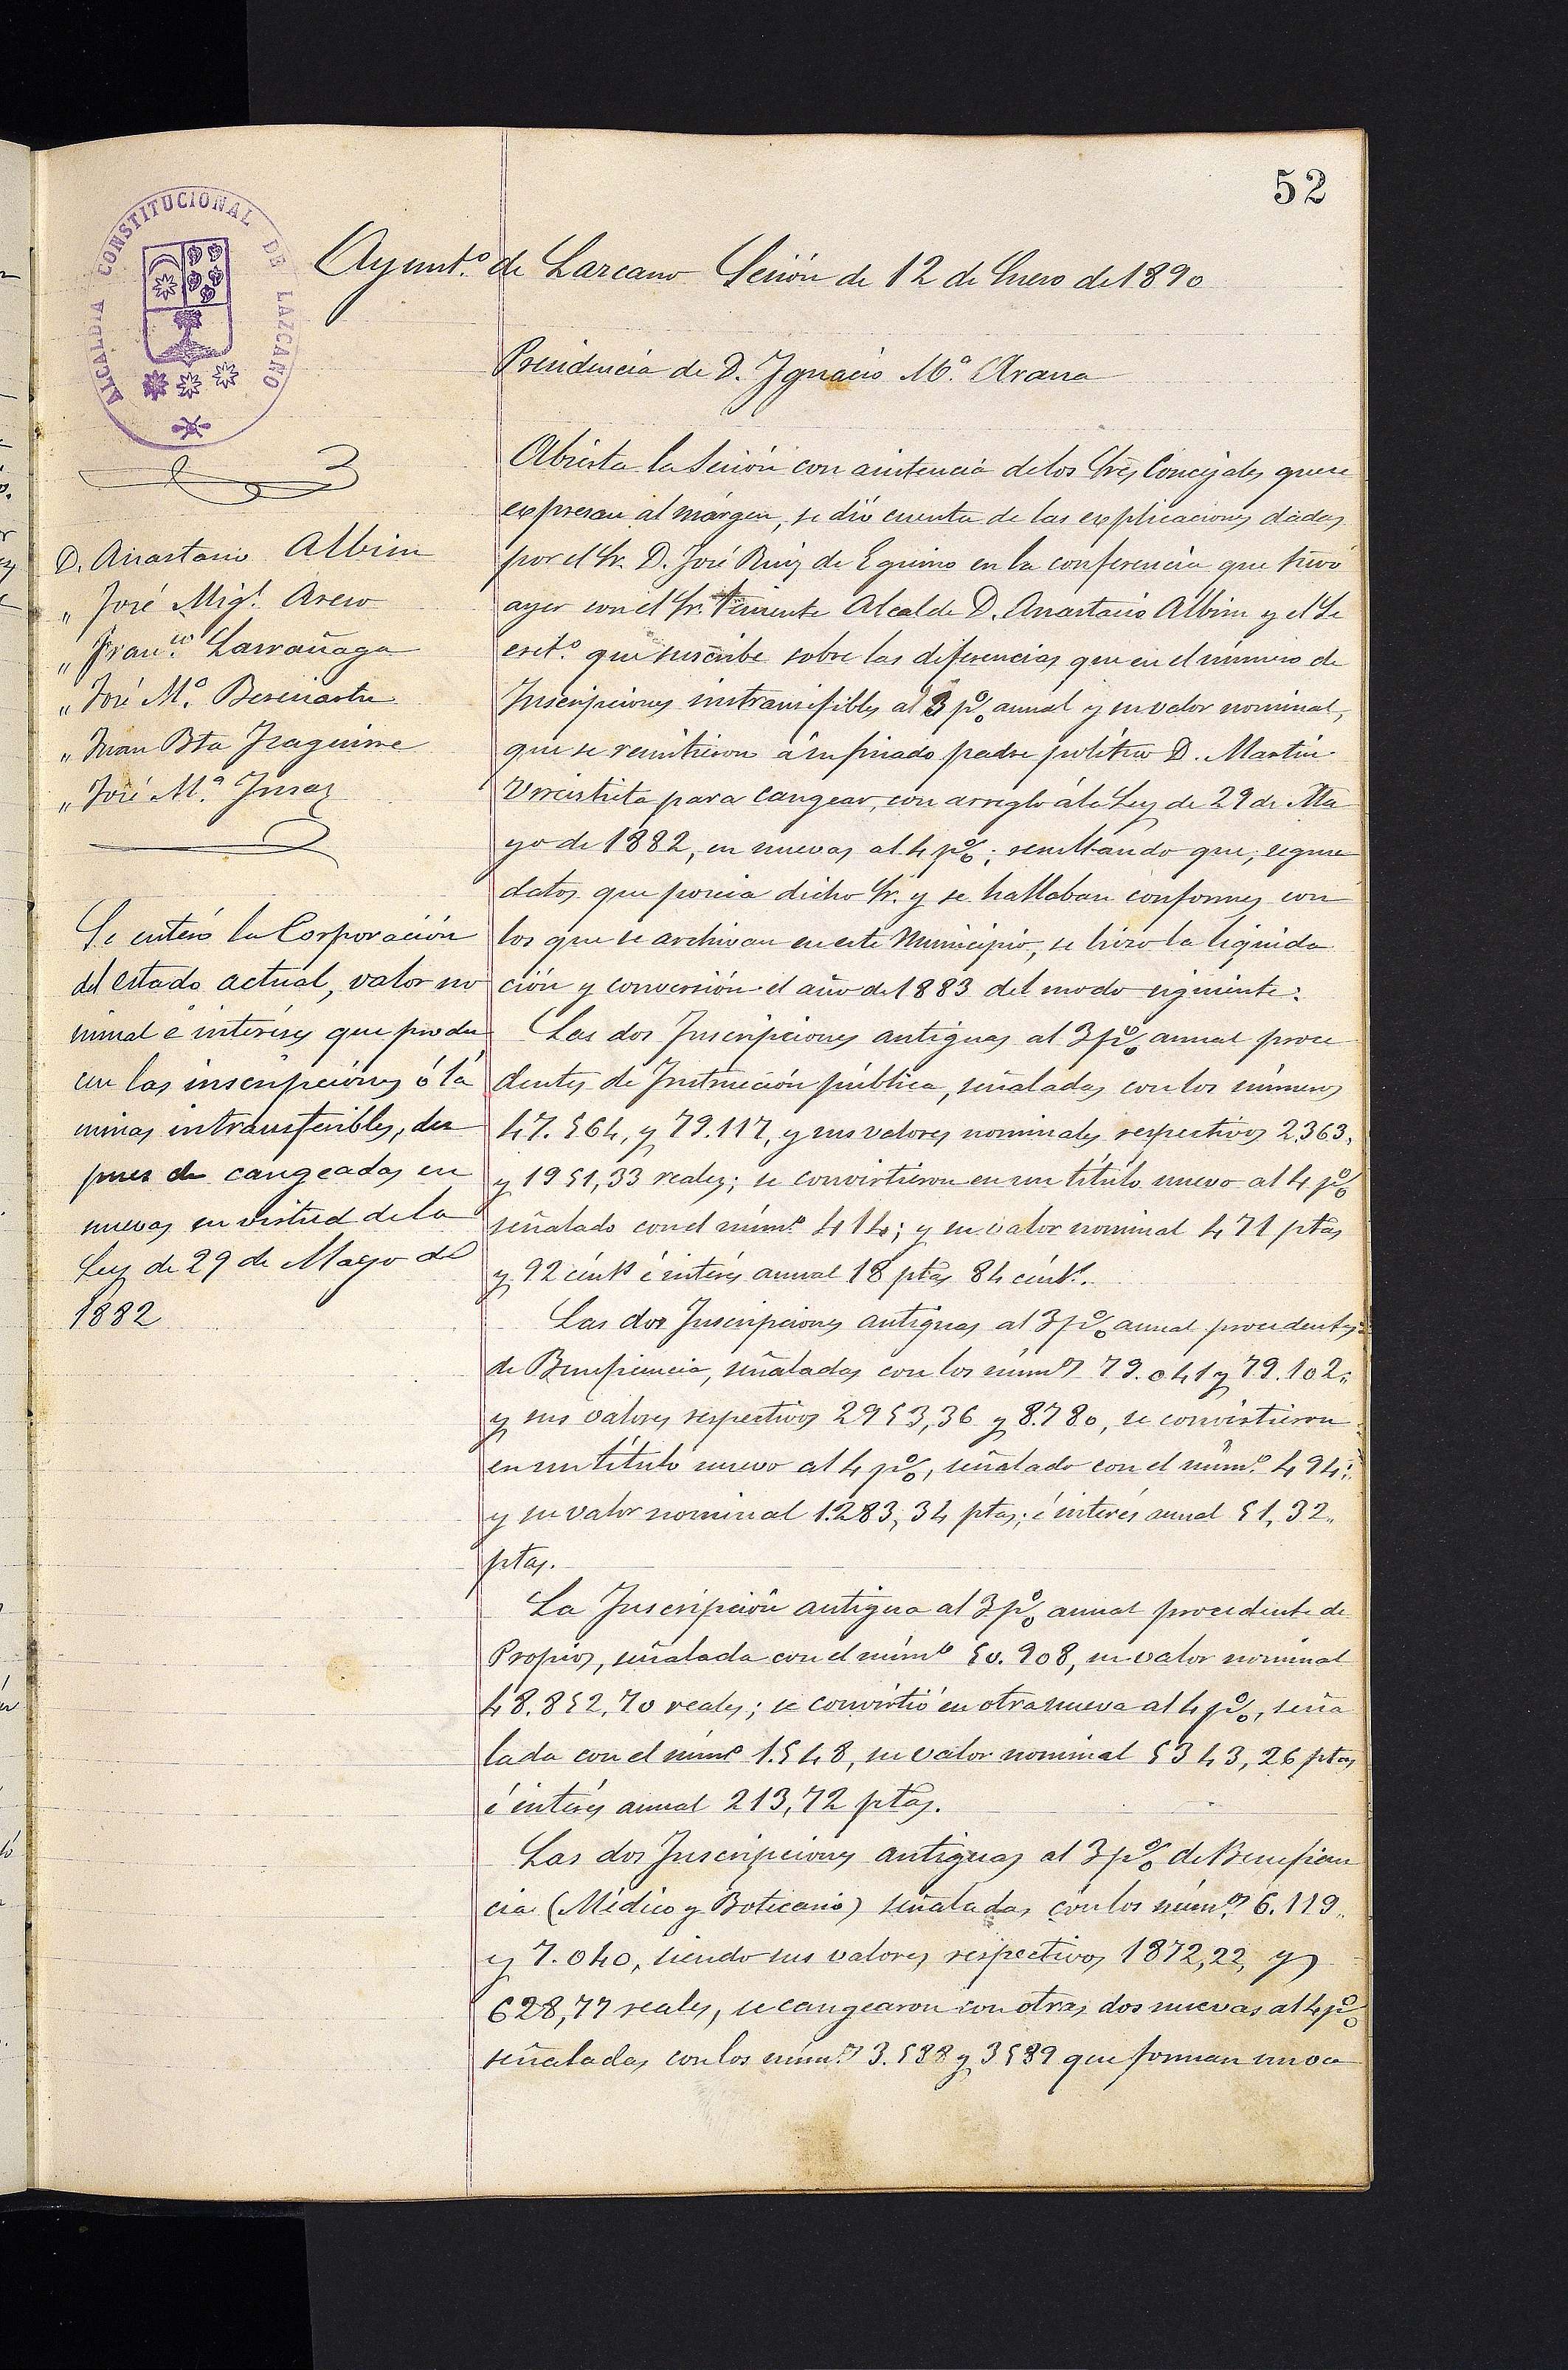 52
ALCALDIA CONSTITUCIONAL DE LAZCANO
Ayunt.º de Lazcano Sesión de 12 de Enero de 1890
Presidencia de D. Ygnacio M.ª Arana
D. Anastasio Albisu
„ José Mig.l
„ Fran.co Larrañaga
„ José M.ª
„ Juan Bta Yzaguirre
„ José M.ª
Se enteró la Corporación
del estado actual, valor no
minal é interéses que produ
cen las inscripciones ó lá
minas intransferibles, des
pues de cangeadas en
nuevas en virtud de la
Ley de 29 de Mayo de
1882
Abierta la Sesión con asistencia de los Sres Concejales que se
expresan al márgen, se dió cuenta de las explicaciones dadas
por el Sr. D. José Ruiz de Eguino en la conferencia que tuvo
ayer con el Sr. Teniente Alcalde D. Anastasio Albisu y el Se
cret.º que suscribe sobre las diferencias que en el número de
Inscripciones intransferibles al 3 p% anual y su valor nominal,
que se remitieron á su finado padre político D. Martin
Urreistieta para cangear, con arreglo á la Ley de 29 de Ma
yo de 1882, en nuevas al 4 p%; resultando que, segun
datos que poseia dicho Sr. y se hallaban conformes con
los que se archivan en este Municipio, se hizo la liquida
ción y conversión el año de 1883 del modo siguiente:
Las dos Inscripciones antiguas al 3 p% anual proce
dentes de Instrucción pública, señaladas con los números
47.564, y 79.117, y sus valores nominales respectivos 2.363,
y 1951,33 reales; se convirtieron en un título nuevo al 4 p%
señalado con el núm.º 414; y su valor nominal 471 ptas
y 92 cént.s é interés anual 18 ptas 84 cént.s.
Las dos Inscripciones antiguas al 3 p% anual procedentes
de Beneficencia, señaladas con los núm.os 79.041 y 79.102„
y sus valores respectivos 2953,36 y 8.780, se convirtieron
en un título nuevo al 4 p%, señalado con el núm.º 494;
y su valor nominal 1.283,34 ptas; é interés anual 51,32„
ptas.
La Inscripción antigua al 3 p% anual procedente de
Propios, señalada con el núm.º 50.908, su valor nominal
48.852,70 reales; se convirtió en otra nueva al 4 p%, seña
lada con el núm.º 1.548, su valor nominal 5343,26 ptas
é interés anual 213,72 ptas.
Las dos Inscripciones antiguas al 3 p% de Beneficen
cia (Médico y Boticario) señaladas con los núm.os 6.119„
y 7.040, siendo sus valores respectivos 1872,22, y
628,77 reales, se cangearon con otras dos nuevas al 4 p%
señaladas con los núm.os 3.588 y 3589 que forman un va